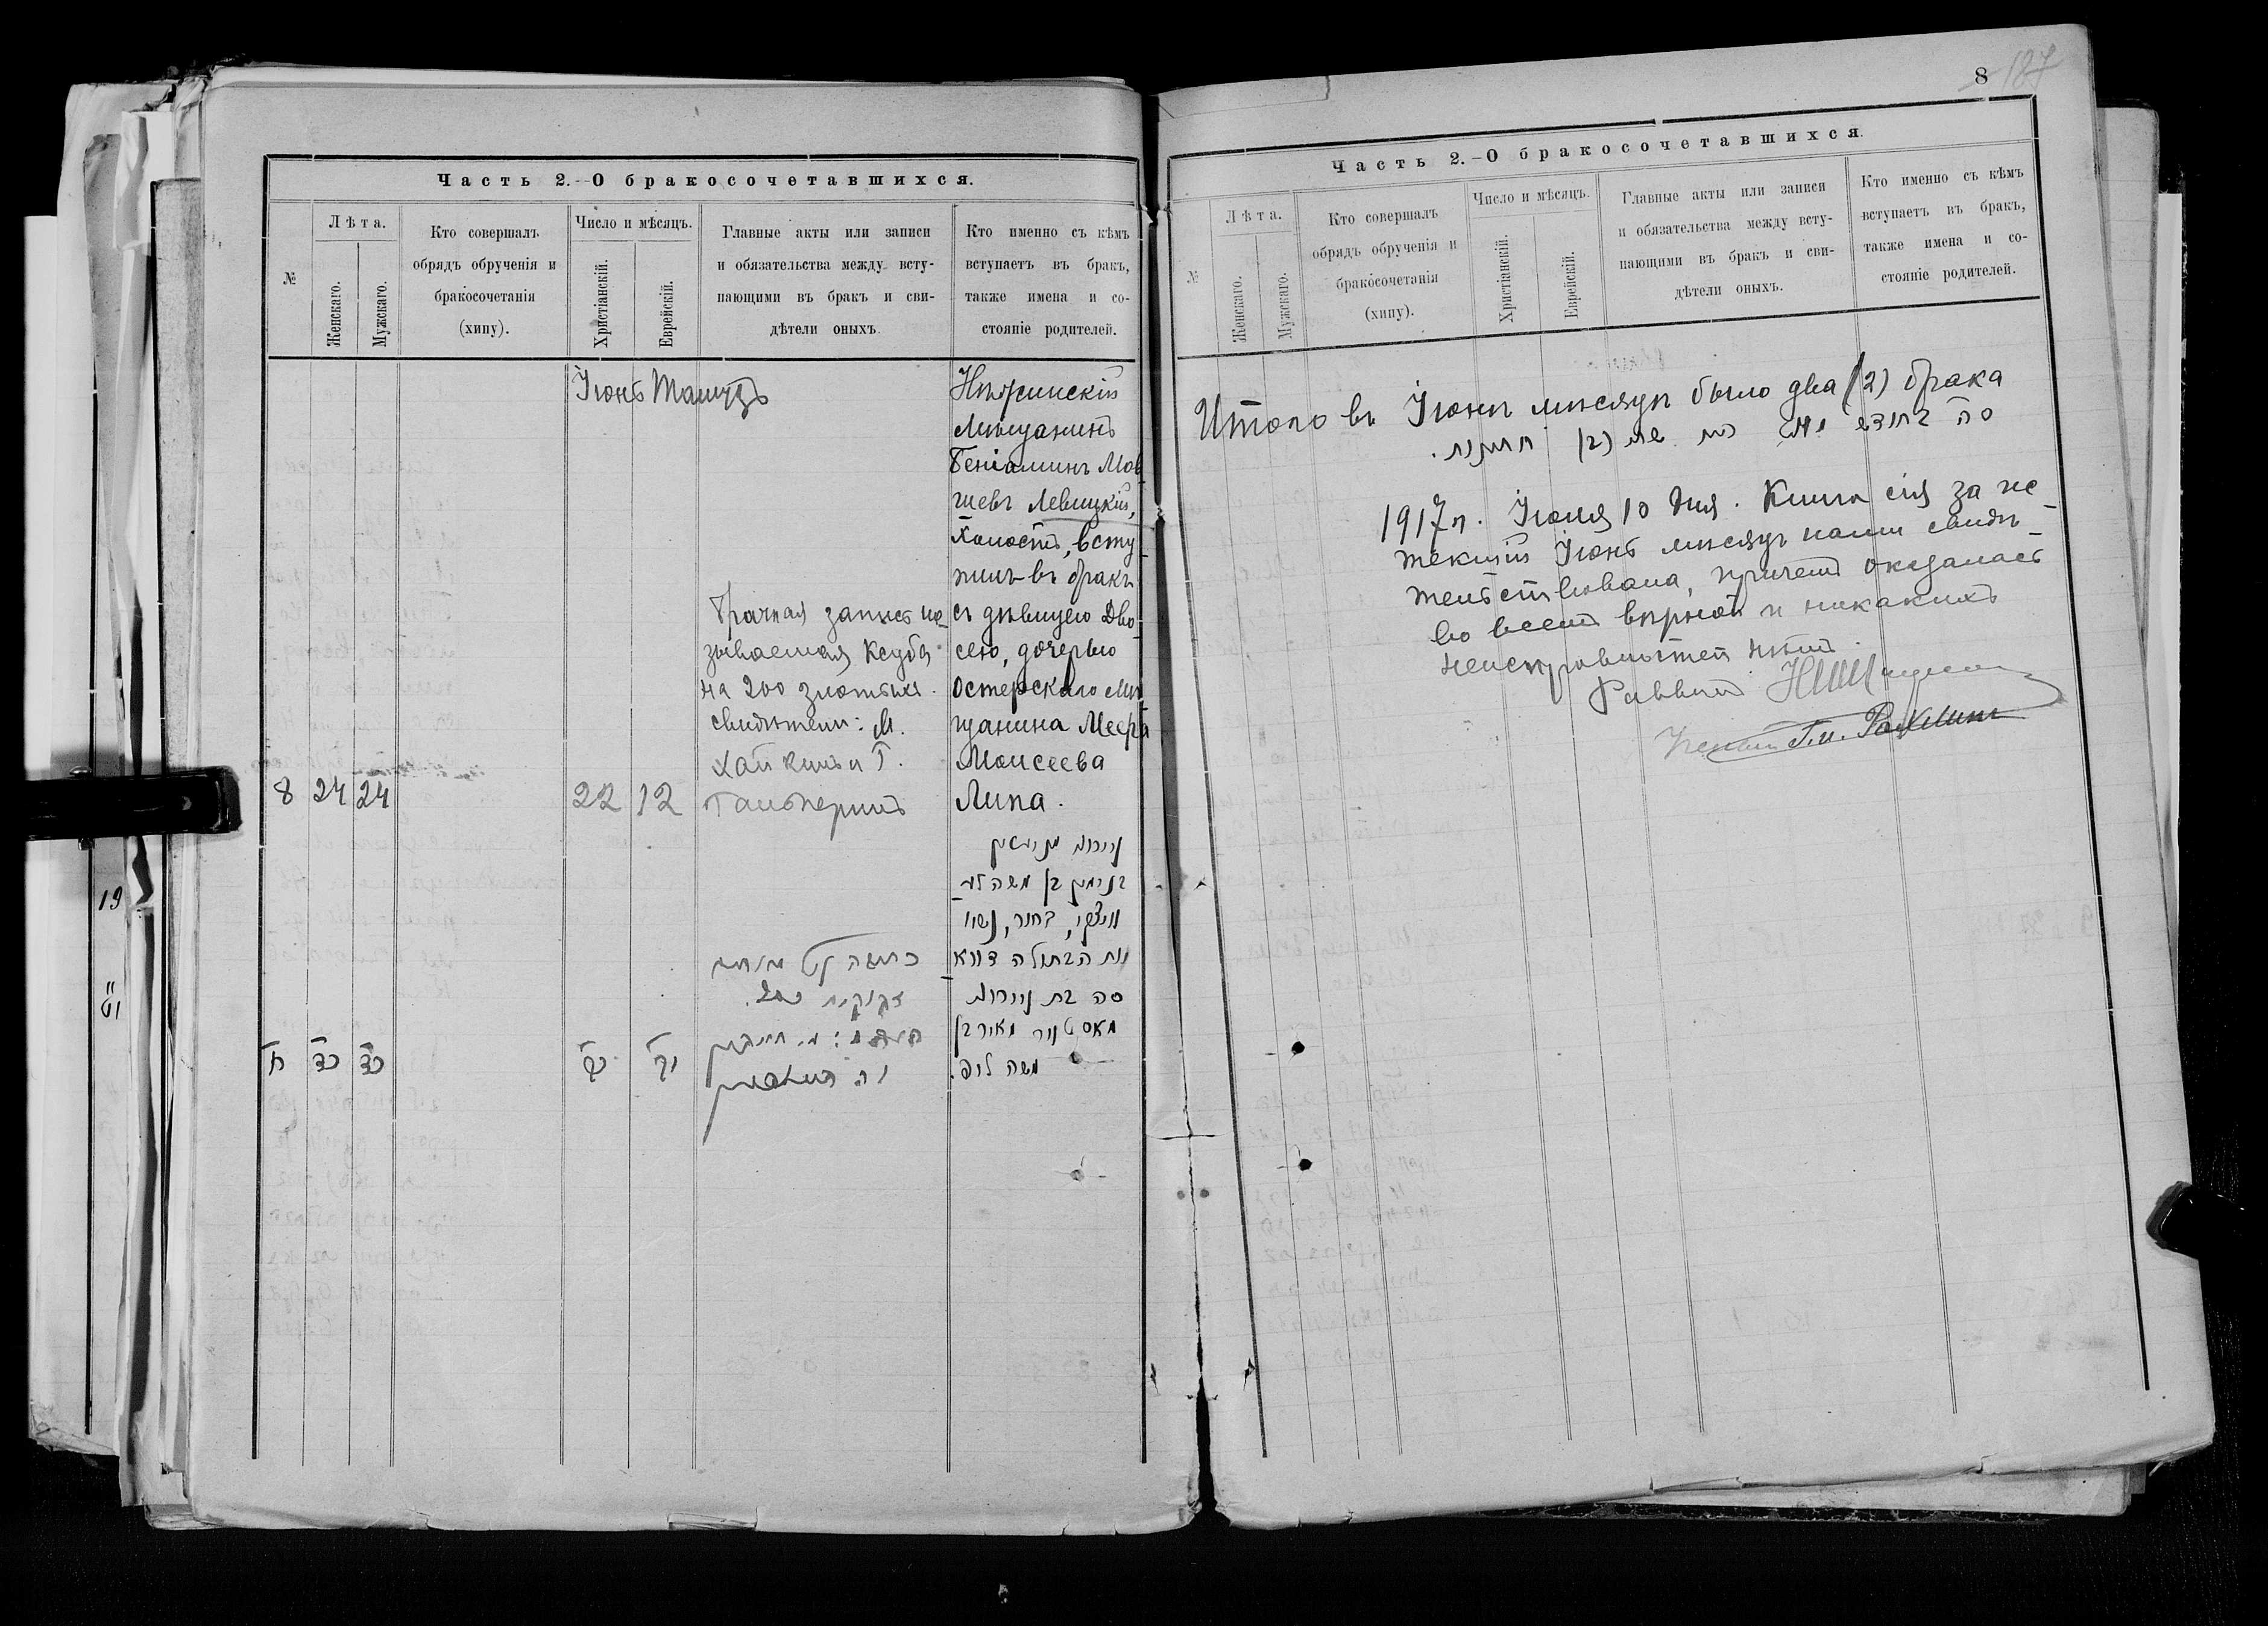 Часть 2.-О бракосочетавшихся.
№
Лѣта.
Женскаго.
Мужскаго.
Кто совершалъ
обрядъ обрученія и
бракосочетанія
(хипу).
Число и мѣсяцъ.
Христіанскій.
Еврейскій.
Главные акты или записи
и обязательства между всту-
пающими въ бракъ и сви-
дѣтели оныхъ.
Кто именно съ кѣмъ
вступаетъ въ бракъ,
также имена и со-
стояніе родителей.
8
24
24
Іюнь
22
Тамузъ
12
Брачная запись на-
зываемая Ксуба
на 200 златыхъ.
Свидѣтели: М.
Хайкинъ и Г.
Гальперинъ
Нѣжинскій
Мѣщанинъ
Беніаминъ Мов-
шевъ Левицкій,
Холостъ, всту-
пилъ въ бракъ
съ дѣвицею Дво-
сею, дочерью
Остерскаго Мѣ-
щанина Меера
Моисеева
Липа.
ח
כד
כד
כב
יב
בנימין בן משה לע
וויצקי, בחור, נשוי
את הבתולה דווא
סה בת
מאסטיור מאיר בן
משה ליפ.
19
8
187
Часть 2.-О бракосочетавшихся.
№
Лѣта.
Женскаго.
Мужскаго.
Кто совершалъ
обрядъ обрученія и
бракосочетанія
(хипу).
Число и мѣсяцъ.
Христіанскій.
Еврейскій.
Главные акты или записи
и обязательства между всту-
пающими въ бракъ и сви-
дѣтели оныхъ.
Кто именно съ кѣмъ
вступаетъ въ бракъ,
также имена и со-
стояніе родителей.
Итого въ Іюнѣ мѣсяцѣ было два (2) брака
סה בחודש (2)
1917 г. Іюля 10 дня. Книга сія за ис-
текшій Іюнь мѣсяцъ нами свидѣ-
тельствована, причемъ оказалась
во всемъ вѣрной и никакихъ
неисправностей нѣтъ.
Раввинъ
Ученый